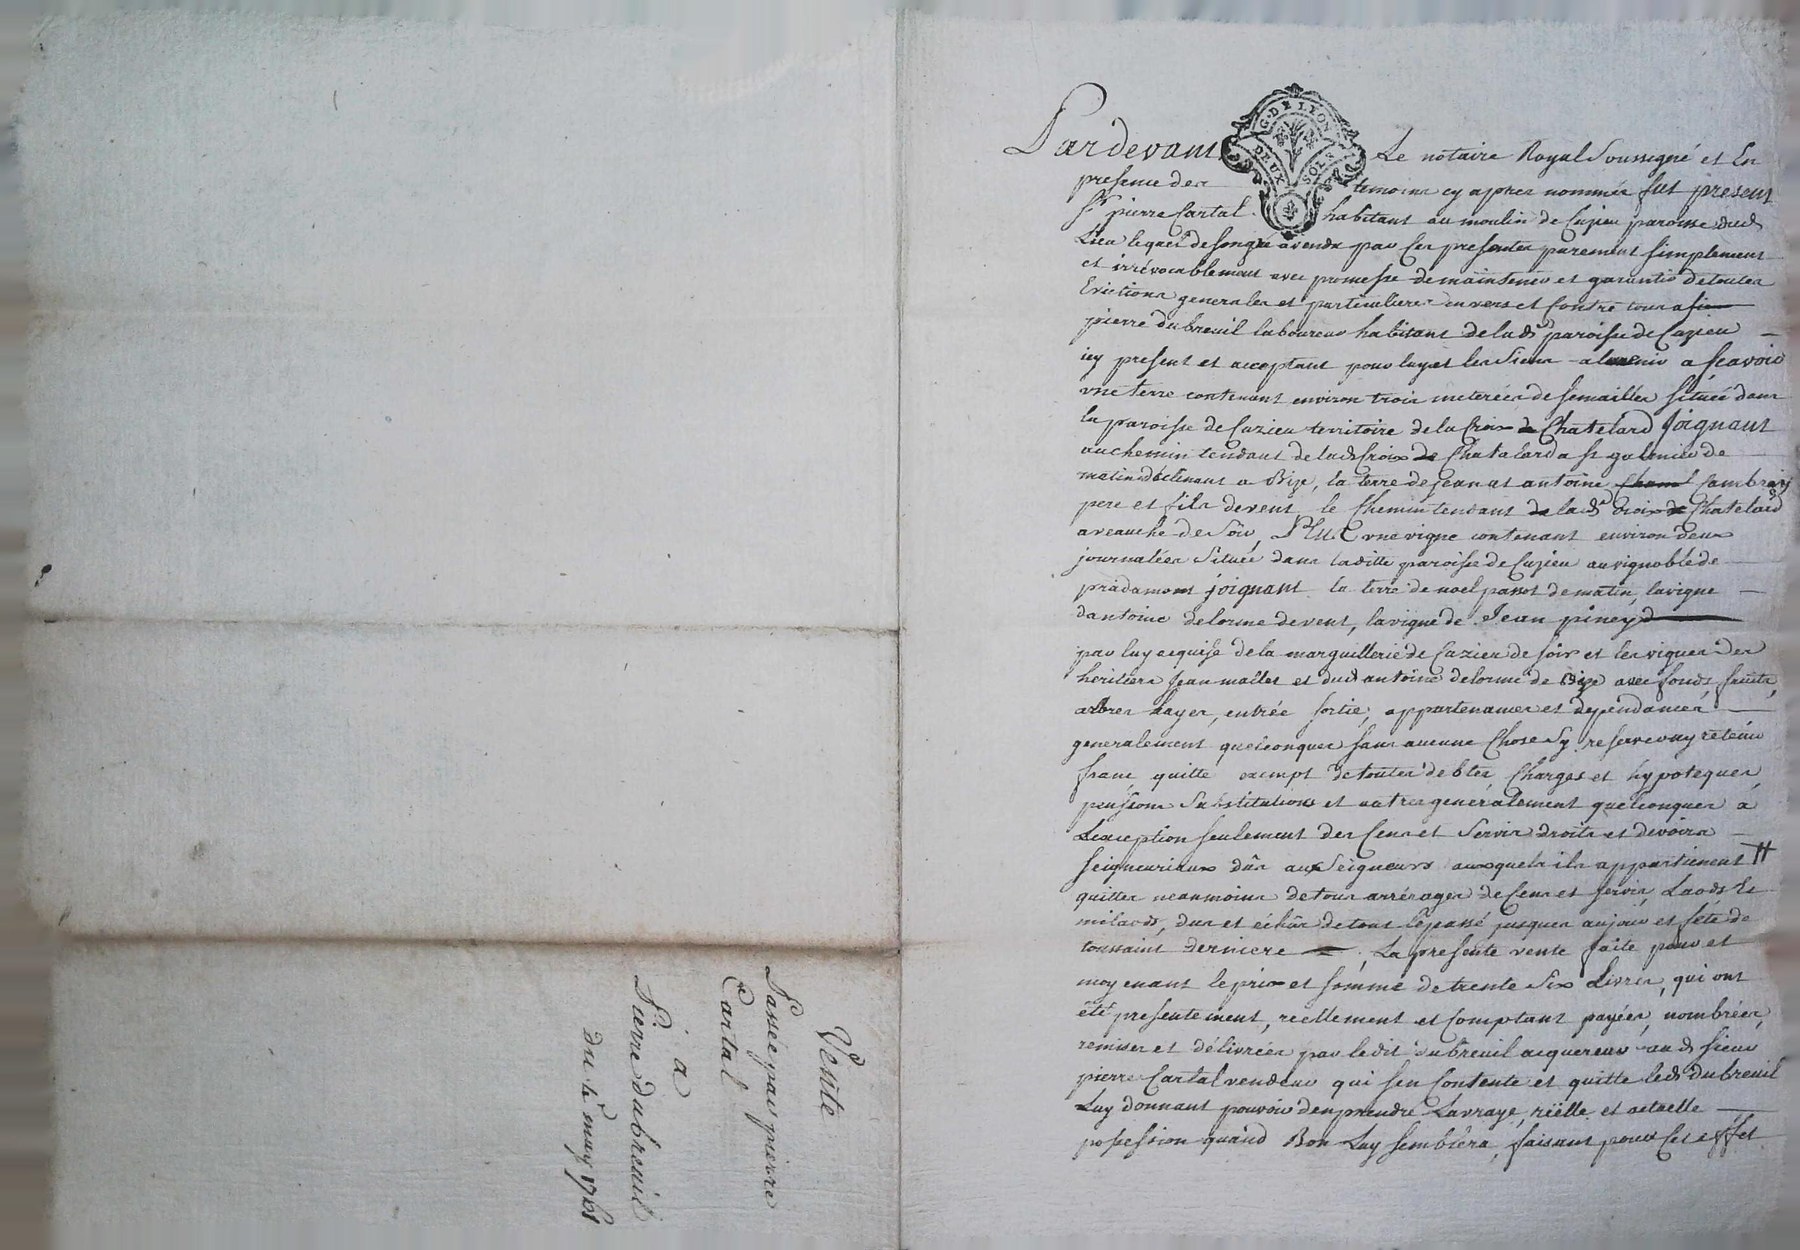 Vente
Passée par pierre
Cartal
à
Sr. Pierre dubreuil
du 1er may 1761
G. DE LYON
DEUX SOLS
Pardevant Le notaire Royal Soussigné et En
presence des temoins cy apres nommés fut present
Sr pierre Cartal habitant au moulin de Cuzieu paroisse dud
Lieu lequel de son gré a vendu par ces presentes purement simplement
et irrévocablement avec promesse de maintenir et garantir de toutes
Evictions generales et particulieres envers et Contre tous a
pierre dubreuil laboureur habitant de lad paroisse de Cuzieu
icy present et acceptant pour luy et les Siens a lavenir a scavoir
une terre contenant environ trois meterées de semailles située dans
la paroisse de Cuzieu territoire de la Croix de Chatelard Joignant
au chemin tendant de lad Croix de Chatelard a St galmier de
matin déclinant a Bize, la terre de jean et antoine Cham Cambray
pere et fils de vent, le Chemin tendant de lad Croix de Chatelard
a veauche de Soir, PLUS une vigne contenant environ deux
journalées Située dans laditte paroisse de Cuzieu au vignoble de
pradamont joignant la terre de noel passot de matin, la vigne
dantoine delorme de vent, la vigne de Jean pineyd
par luy acquise de la marguillerie de Cuzieu de soir et les vignes des
heritiers Jean mallet et dud antoine delorme de Bize avec fonds, fruits,
arbres hayes, entrée sortie, appartenances et dependances
generalement quelconques sans aucune Chose Sy reserver ny retenir
franc, quitte exempt de toutes debtes, Charges et hypoteques,
pensions Substitutions et autres generalement quelconques à
Lexception seulement des Cens et Servis droits et devoirs
seigneuriaux dûs aux Seigneurs auxquels ils appartienent #
quittes neanmoins de tous arrérages de Cens et servis, Laods et
milaods, dus et échûs de tout le passé jusques aujour et fête de
toussaint derniere ; La presente vente faite pour et
moyenant le prix et somme de trente Six Livres, qui ont
été presentement, reellement et Comptant payées, nombrées,
remises et délivrées par ledit dubreuil acquereur aud sieur
pierre Cartal vendeur qui sen Contente et quitte led dubreuil
Luy donnant pouvoir den prendre La vraye, réelle et actuelle
possession quand Bon Luy semblera, faisant pour Cet effet